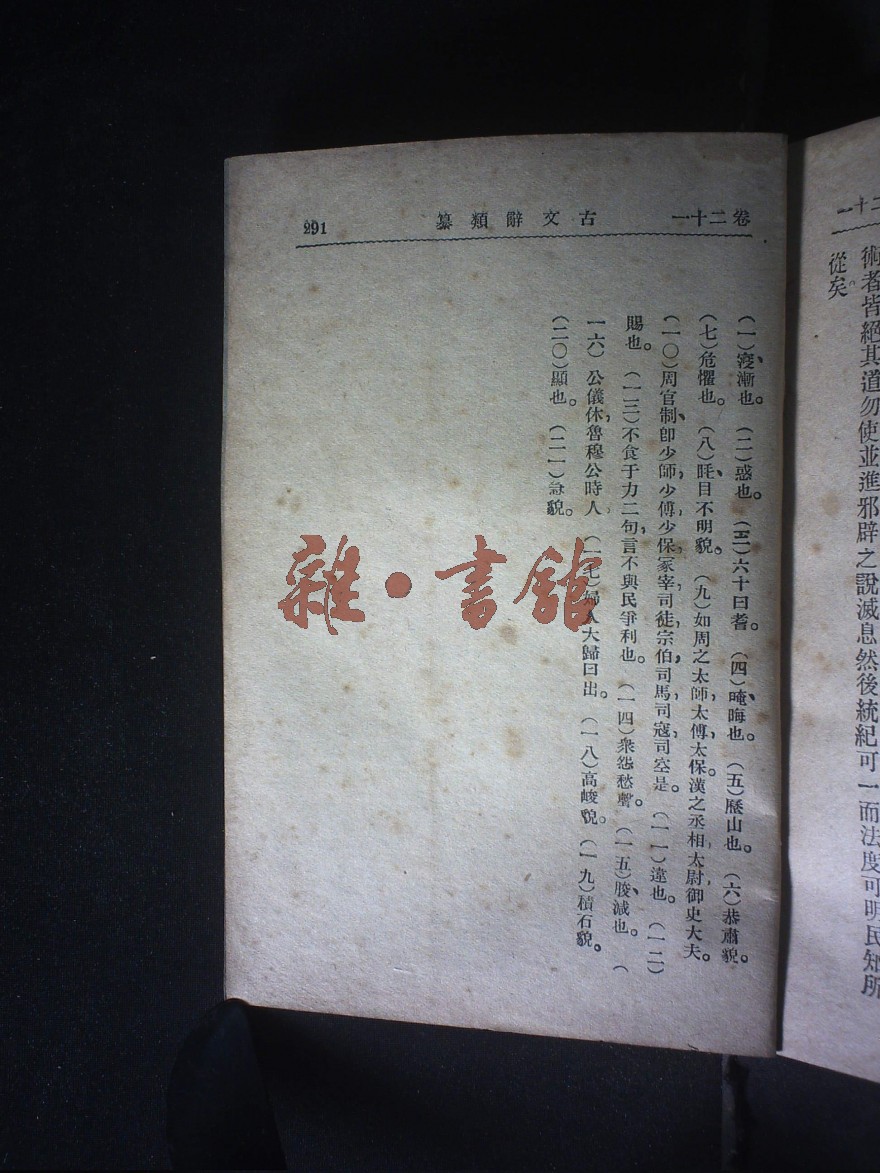 卷二十一 古文辭類纂 291
(一)寖、漸也。(二)惑也。(三)六十曰耆。(四)晻、晦也。(五)歷山也。(六)恭肅貌。
(七)危懼也。(八)眊、目不明貌。(九)如周之太師,太傅,太保。漢之丞相,太尉,御史大夫。
(一〇)周官制、卽少師,少傅,少保,冢宰,司徒,宗伯,司馬,司寇,司空是。(一一)違也。(一二)
賜也。(一三)不食于力二句,言不與民爭利也。(一四)衆怨愁聲。(一五)朘、減也。(
一六)公儀休,魯穆公時人 (一七)婦人大歸曰出。(一八)高峻貌。(一九)積石貌。
(二〇)顯也。(二一)急貌。
雜·書館
術者皆絕其道勿使並進邪辟之說滅息然後統紀可一而法度可明民知所
從矣